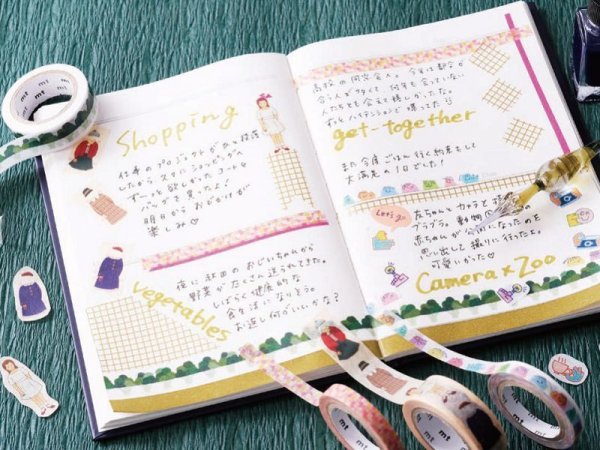 Shopping
仕事のプロジェクトがやっと段落
したから、久々にショッピングへ
ずーっと欲しかったコートと
バッグを買ったよ!
明日からおでかけが
楽しみ♡
vegetables
夜に秋田のおじいちゃんから
野菜がたくさん送られてきた。
しばらく健康的な
食生活になりそう。
お返し何がいいかな?
高校の同窓会へ。今年は都合が
合う人が多くて、何年も会っていない
人たちとも会えて嬉しかったな。
ハイテンションに喋ってた
get-together
また今度ごはん行く約束をして
大満足の1日でした!
Let's go
赤ちゃんが
公開になったのを
思い出して撮りに行ったよ。
可愛いかった♡
Camera×Zoo
mt
mt
mt
mt